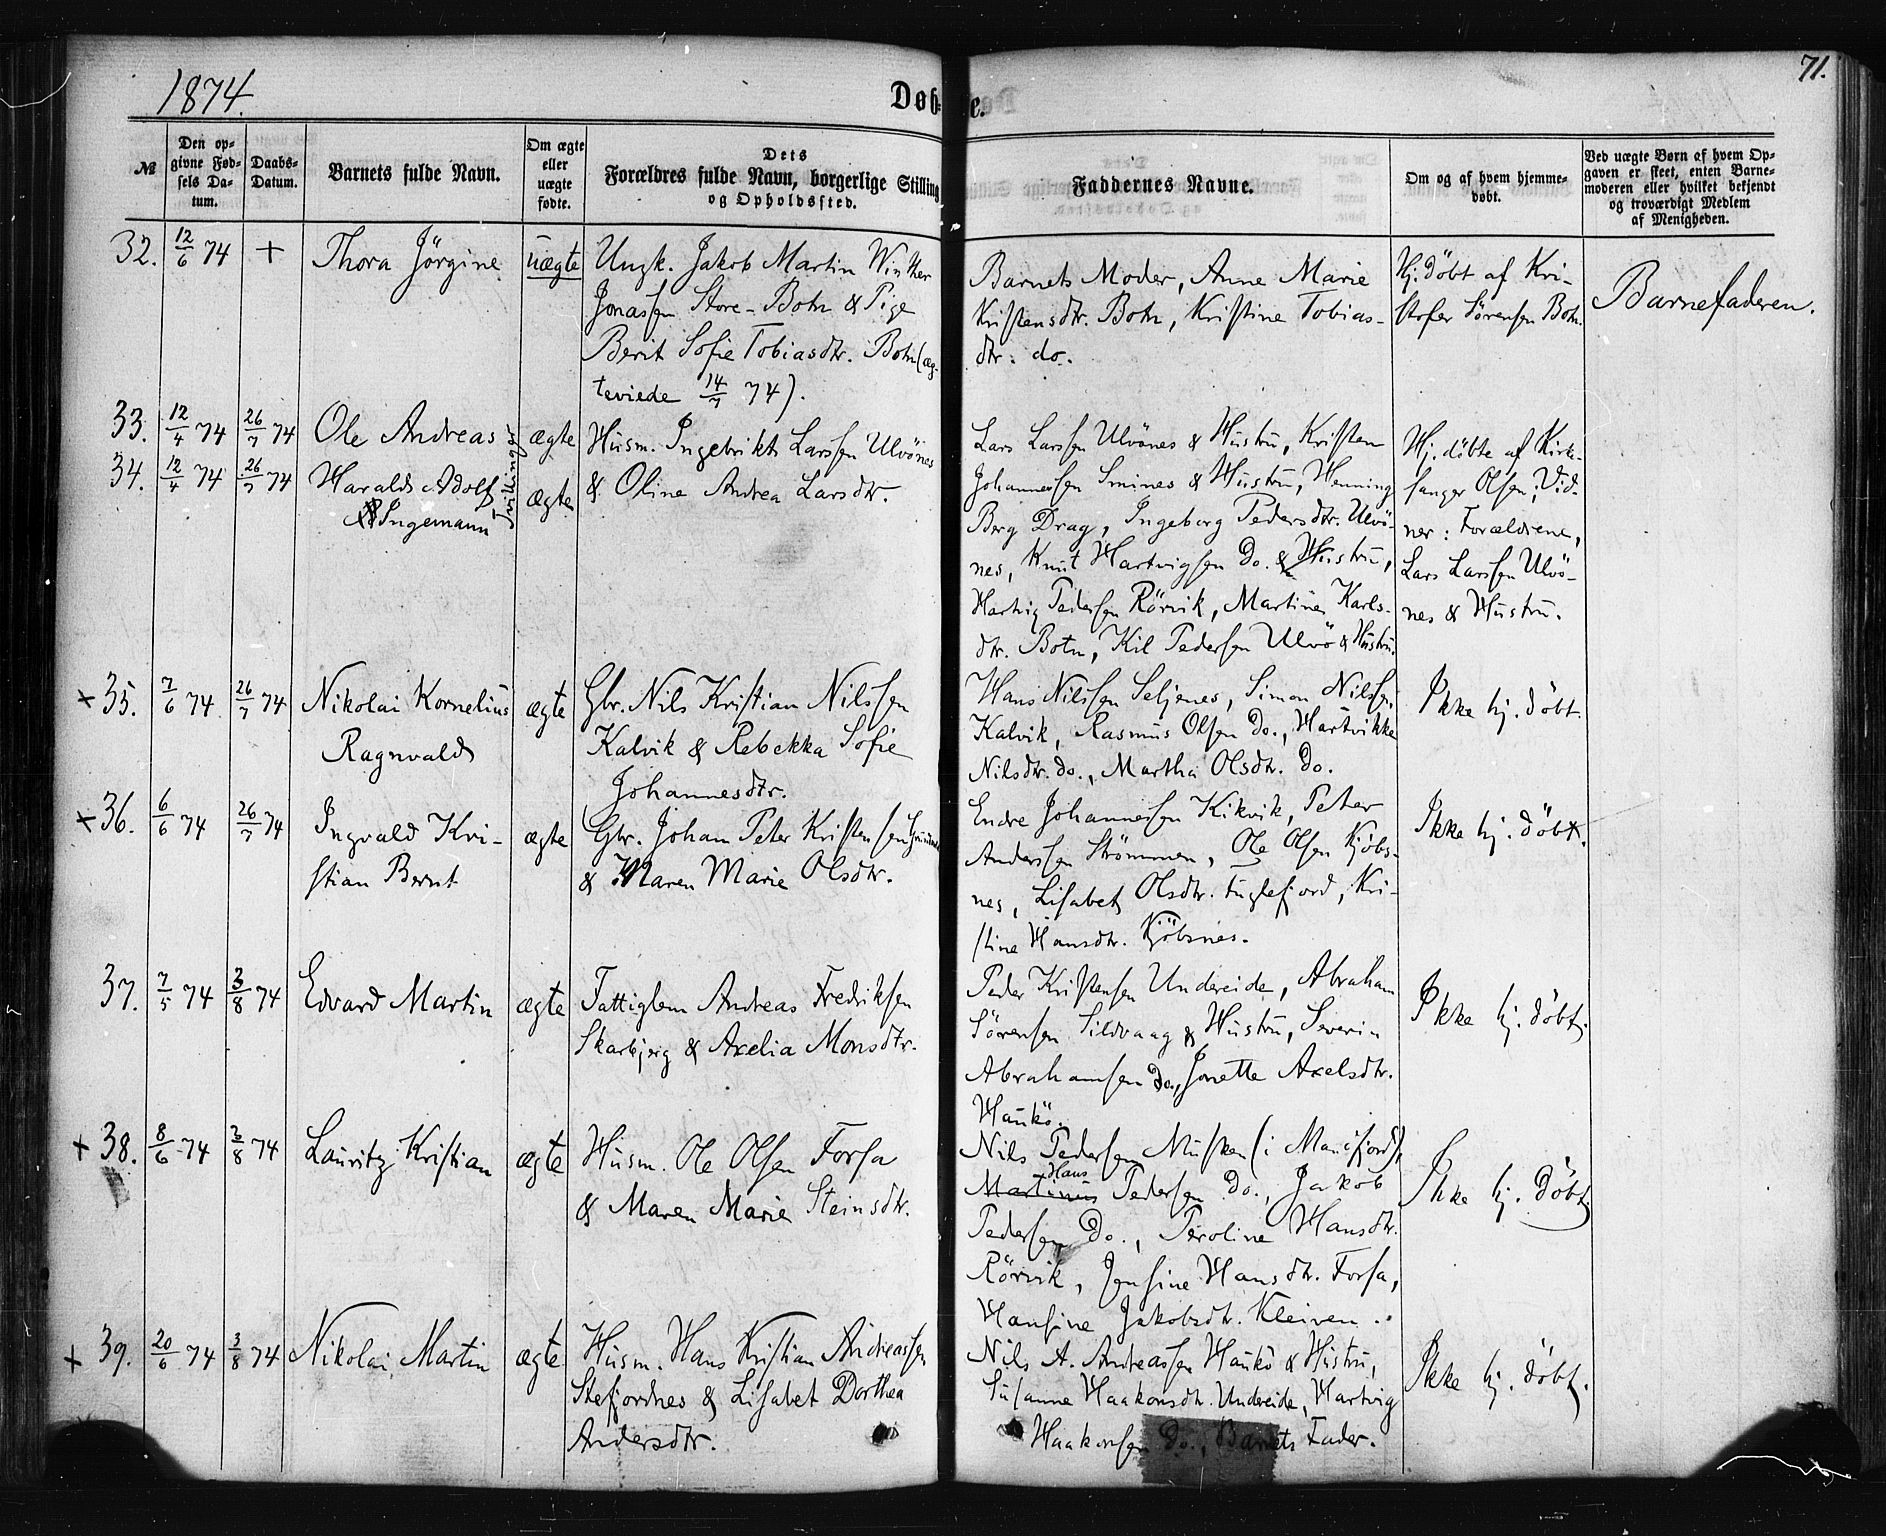 1874.
Døb-
e.
71.
№
Den op-
givne Fød-
sels Da-
tum.
Daabs-
Datum.
Barnets fulde Navn.
Om ægte
eller
uægte
fødte.
Dets
Forældres fulde Navn, borgerlige Stilling
og Opholdssted.
Faddernes Navne.
Om og af hvem hjemme-
døbt.
Ved uægte Børn af hvem Op-
gaven er skeet, enten Barne-
moderen eller hvilket bekjendt
og troværdigt Medlem
af Menigheden.
32. 12/6 74 + Thora Jörgine uægte
Ungk. Jakob Martin Winther
Jonassen Store-Botn & Pige
Berit Sofie Tobiasdtr. Botn (æg-
teviede 14/7 74).
Barnets Moder, Anne Marie
Kristensdtr. Botn, Kristine Tobias-
dtr. do.
Hj. döbt af Kri-
stofer Sörensen Botn.
Barnefaderen.
33. 12/4 74 26/7 74 Ole Andreas ægte
34. 12/4 74 26/7 74 Harald Adolf ægte
Ingemann
Tvillinger
Husm. Ingebrikt Larssen Ulvönes
& Oline Andrea Larsdtr.
Lars Larssen Ulvönes & Hustru, Kristen
Johannessen Sminес & Hustru, Henning
Berg Drag, Ingeborg Pedersdtr. Ulvö-
nes, Knut Hartvigsen Do. & Hustru,
Hartvig Pedersen Rörvik, Martine Karls-
dtr. Botn, Kil Pedersen Ulvö & Hustru.
Hj. döbte af Kirke-
sanger Olsen; Vid-
ner: Forældrene,
Lars Larssen Ulvö-
nes & Hustru.
+ 35. 7/6 74. 26/7 74 Nikolai Kornelius
Ragnvald
ægte
Gbr. Nils Kristian Nilssen
Kalvik & Rebekka Sofie
Johannesdtr.
Hans Nilssen Seljenes, Simon Nilssen
Kalvik, Rasmus Olsen Do., Hartvikke
Nilsdtr. do., Martha Olsdtr. Do.
Ikke hj. döbt.
+ 36. 6/6 74 26/7 74 Ingvald Kri-
stian Bernt
ægte
Gbr. Johan Peter Kristensen
& Maren Marie Olsdtr.
Endre Johannessen Kikvik, Peter
Anderssen Strömmen, Ole Olsen Kjöbs-
nes, Lisabet Olsdtr. Fuglefjord, Kri-
stine Hansdtr. Kjöbsnes.
Ikke hj. döbt.
37. 7/5 74 3/8 74 Edvard Martin ægte
Fattiglem Andreas Fredriksen
Skarbjerg & Axelia Monsdtr.
Peder Kristensen Undereide, Abraham
Sörensen Sildvaag & Hustru, Severin
Abrahamsen Do., Jonette Axelsdtr.
Haukö.
Ikke hj. döbt.
+ 38. 8/6 74 3/8 74 Lauritz Kristian ægte
Husm. Ole Olsen Forsa
& Maren Marie Steinsdtr.
Nils Pedersen Musken (i Manfjord),
Hans
Martinus Pedersen Do., Jakob
Pedersen Do., Peroline Hansdtr.
Rörvik, Jensine Hansdtr. Forsa,
Hansine Jakobsdtr. Kleiven.
Ikke hj. döbt.
+ 39. 20/6 74 3/8 74 Nikolai Martin ægte
Husm. Hans Kristian Andreassen
Stefjordnes & Lisabet Dorthea
Andersdtr.
Nils A. Andreassen Haukö & Hustru,
Susanne Haakonsdtr. Undereide, Hartvig
Haakonsen Do., Barnets Fader.
Ikke hj. döbt.